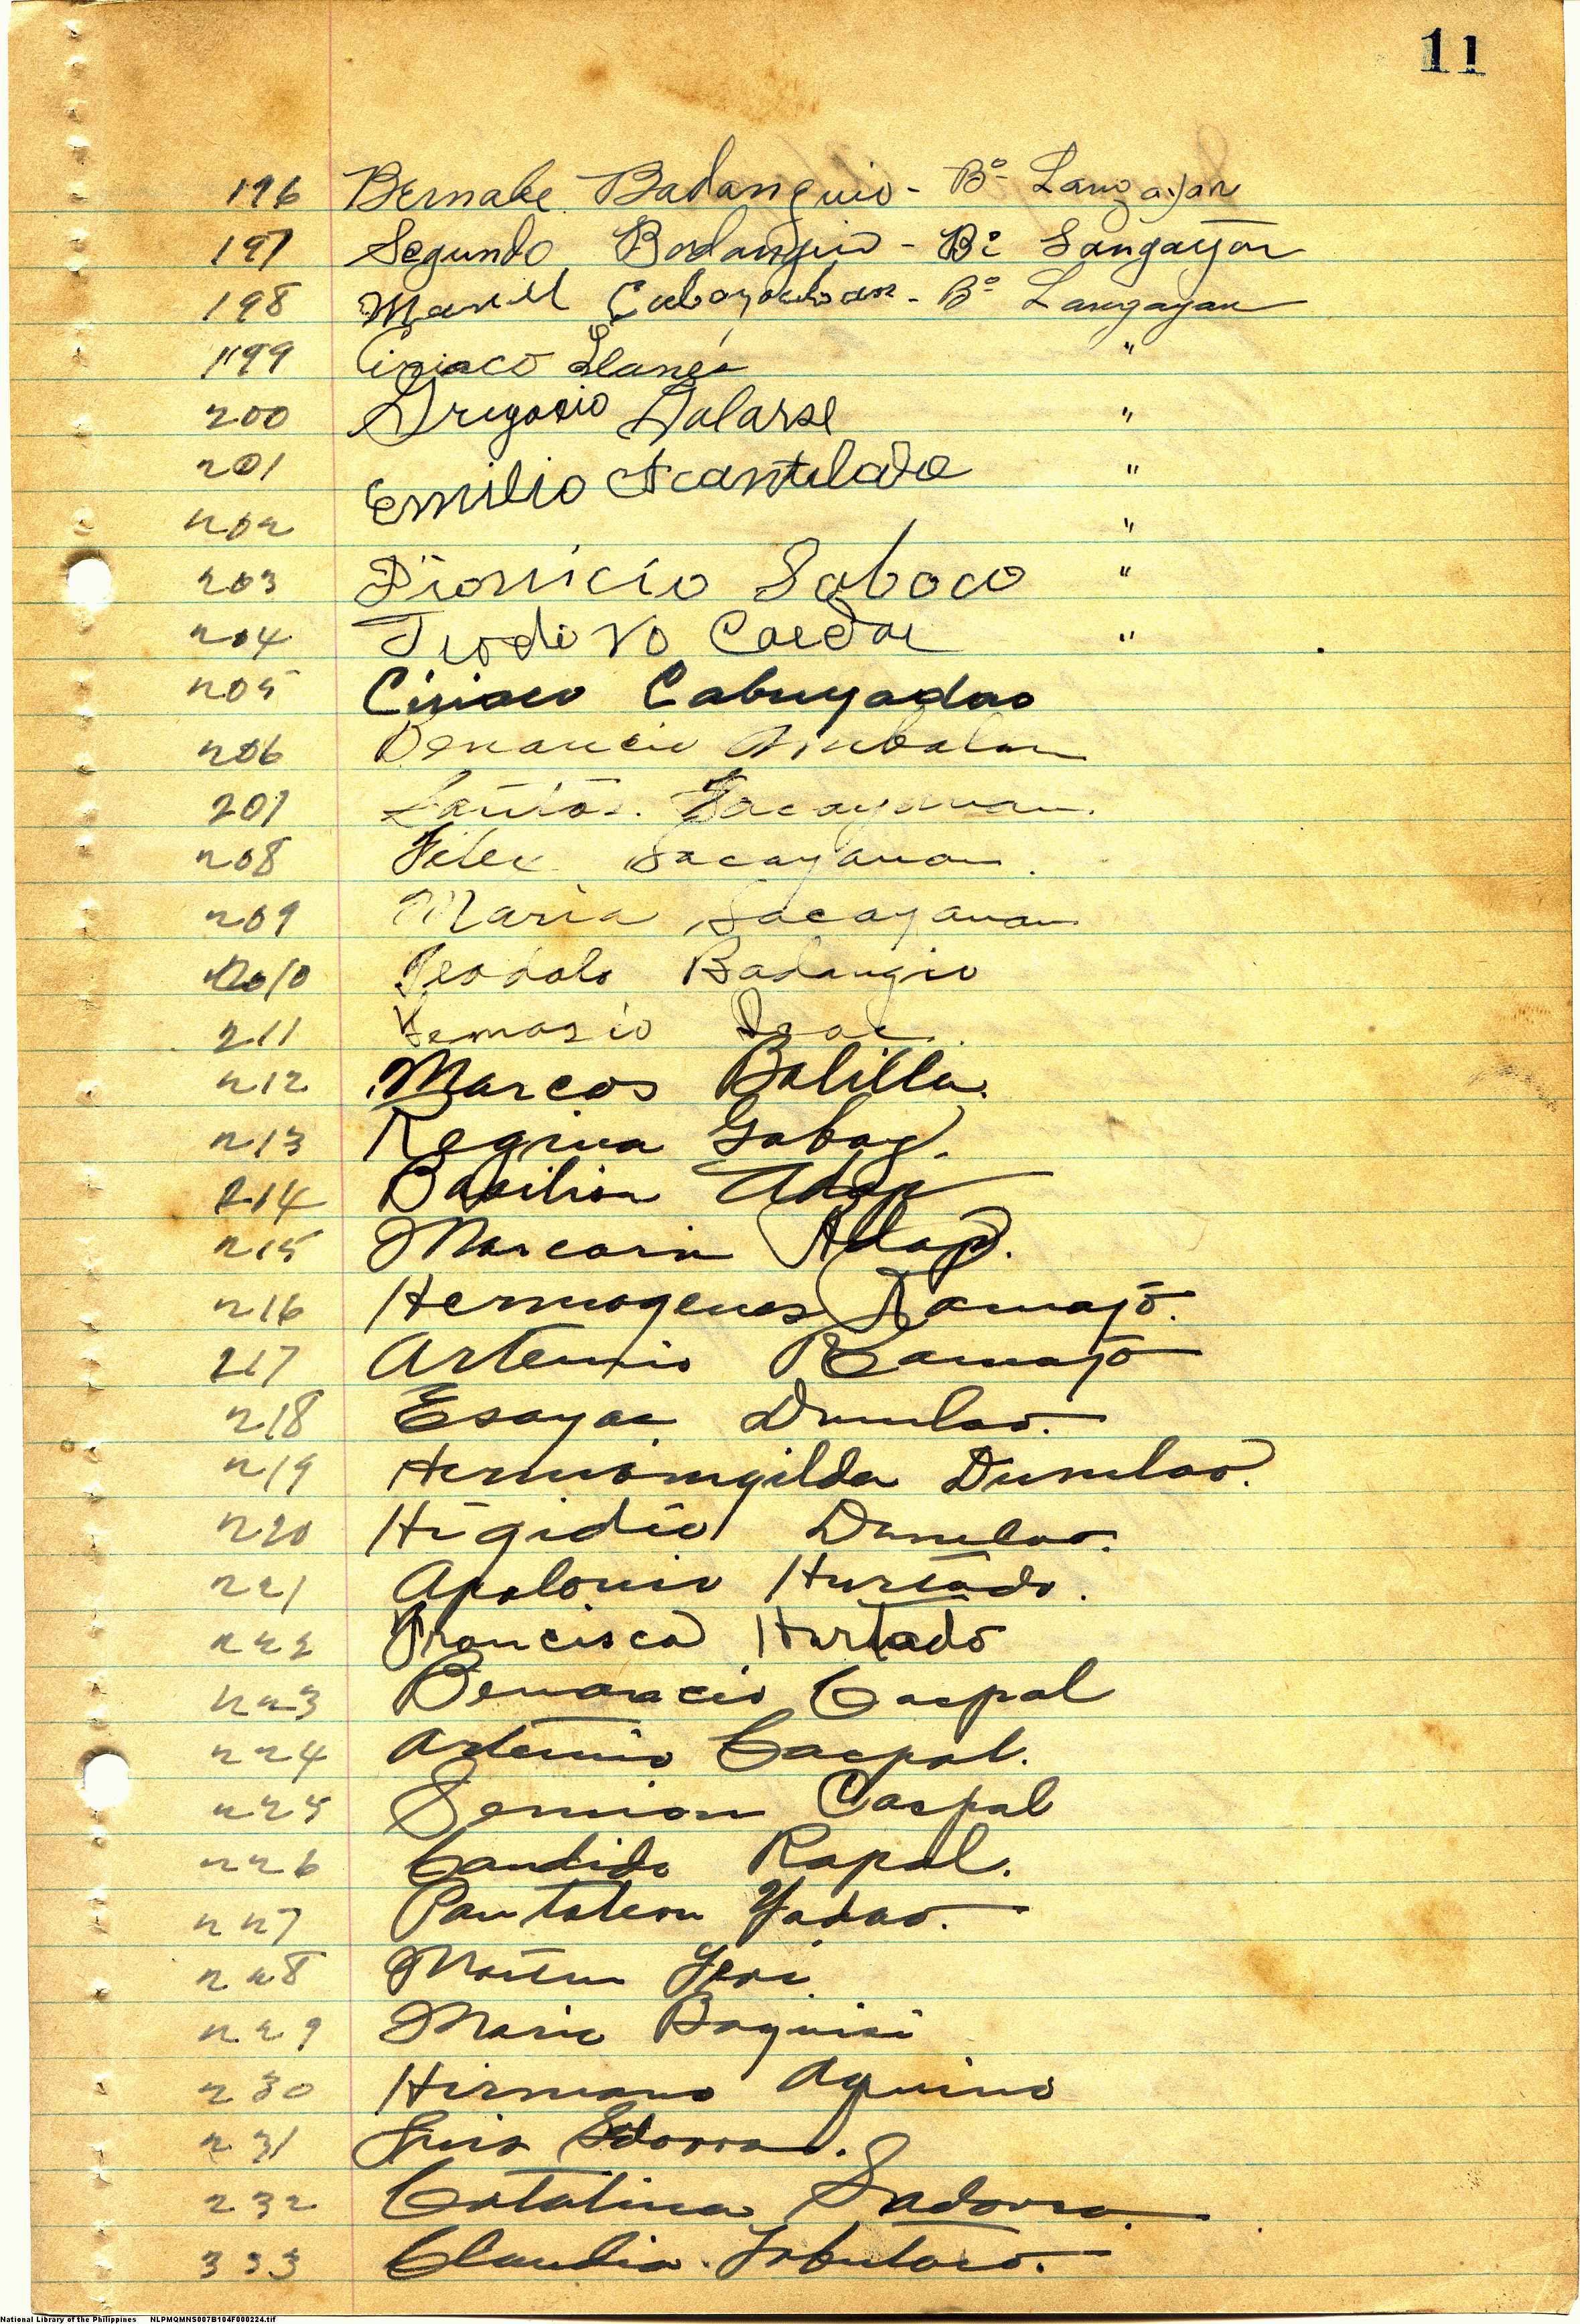 11
196 Bernabe Badanguio - Bo Langayan
197 Segundo Badanguio - Bo Langayan
198 Manuel Cabayacban - Bo Langayan
199 Ciriaco Llanes "
200 Gregorio Dalarse "
201 Emilio Acantelado "
202 "
203 Dionicio Saboco "
204 Teodoro "
205 Ciriaco Cabuyadao
206 Benancio
207 Santos Sacayanan
208 Felex Sacayanan
209 Maria Sacayanan
210 Teodolo Badangio
211
212 Marcos Balilla.
213 Regina Gabay.
214 Basilisa Adap
215 Marcaria Adap.
216 Hermogenes Ramajo.
217 Artemio Ramajo
218 Esayas Dumlao.
219 Hermomgilda Dumlao.
220 Higidio Dumlao.
221 Apolonio Hurtado.
222 Francisca Hurtado
223 Benancio Caspal
224 Artemio Caspal.
225 Semion Caspal
226 Candido Rapal.
227 Pantaleon Yadao.
228
229 Maria Baguisi
230 Hirmano Aquino
231 Luis
232 Catalina Sadorra.
333 Claudia Tabutaro.
National Library of the Philippines NLPMQMNS007B104F000224.tif